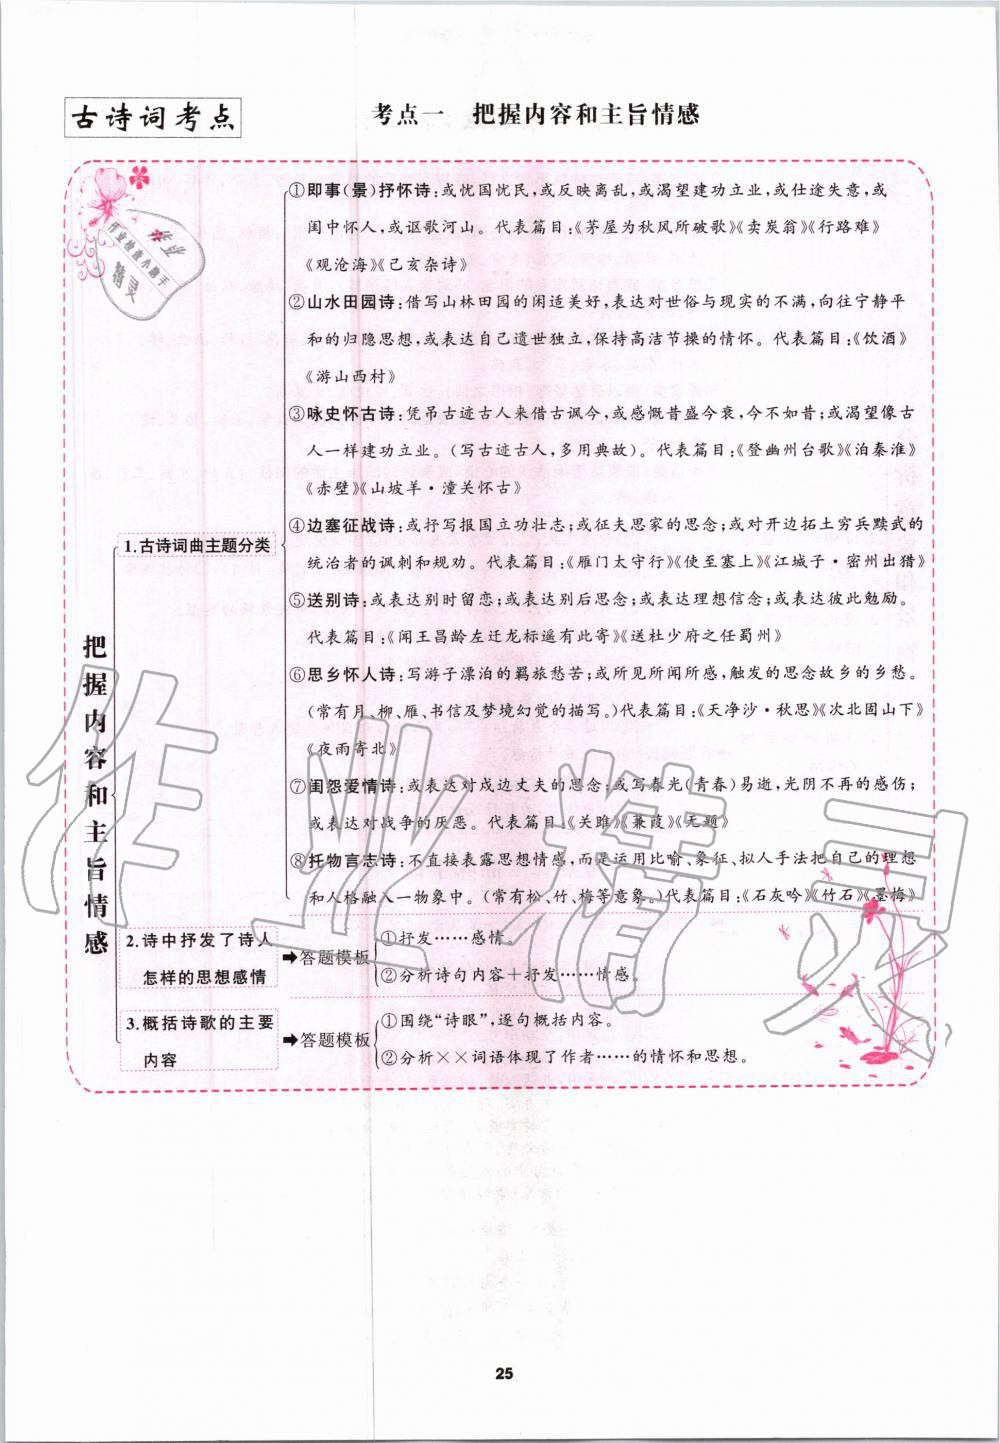 古诗词考点
考点一 把握内容和主旨情感
作业检查小助手
精灵
作业
把握内容和主旨情感
1.古诗词曲主题分类
①即事(景)抒怀诗:或忧国忧民,或反映离乱,或渴望建功立业,或仕途失意,或
闺中怀人,或讴歌河山。代表篇目:《茅屋为秋风所破歌》《卖炭翁》《行路难》
《观沧海》《己亥杂诗》
②山水田园诗:借写山林田园的闲适美好,表达对世俗与现实的不满,向往宁静平
和的归隐思想,或表达自己遗世独立,保持高洁节操的情怀。代表篇目:《饮酒》
《游山西村》
③咏史怀古诗:凭吊古迹古人来借古讽今,或感慨昔盛今衰,今不如昔;或渴望像古
人一样建功立业。(写古迹古人,多用典故)。代表篇目:《登幽州台歌》《泊秦淮》
《赤壁》《山坡羊·潼关怀古》
④边塞征战诗:或抒写报国立功壮志;或征夫思家的思念;或对开边拓土穷兵黩武的
统治者的讽刺和规劝。代表篇目:《雁门太守行》《使至塞上》《江城子·密州出猎》
⑤送别诗:或表达别时留恋;或表达别后思念;或表达理想信念;或表达彼此勉励。
代表篇目:《闻王昌龄左迁龙标遥有此寄》《送杜少府之任蜀州》
⑥思乡怀人诗:写游子漂泊的羁旅愁苦;或所见所闻所感,触发的思念故乡的乡愁。
(常有月、柳、雁、书信及梦境幻觉的描写。)代表篇目:《天净沙·秋思》《次北固山下》
《夜雨寄北》
⑦闺怨爱情诗:或表达对戍边丈夫的思念;或写春光(青春)易逝,光阴不再的感伤;
或表达对战争的厌恶。代表篇目:《关雎》《蒹葭》《无题》
⑧托物言志诗:不直接表露思想情感,而是运用比喻、象征、拟人手法把自己的理想
和人格融入一物象中。(常有松、竹、梅等意象。)代表篇目:《石灰吟》《竹石》《墨梅》
2.诗中抒发了诗人
怎样的思想感情
➡答题模板
①抒发……感情。
②分析诗句内容+抒发……情感。
3.概括诗歌的主要
内容
➡答题模板
①围绕“诗眼”,逐句概括内容。
②分析××词语体现了作者……的情怀和思想。
作业精灵
25